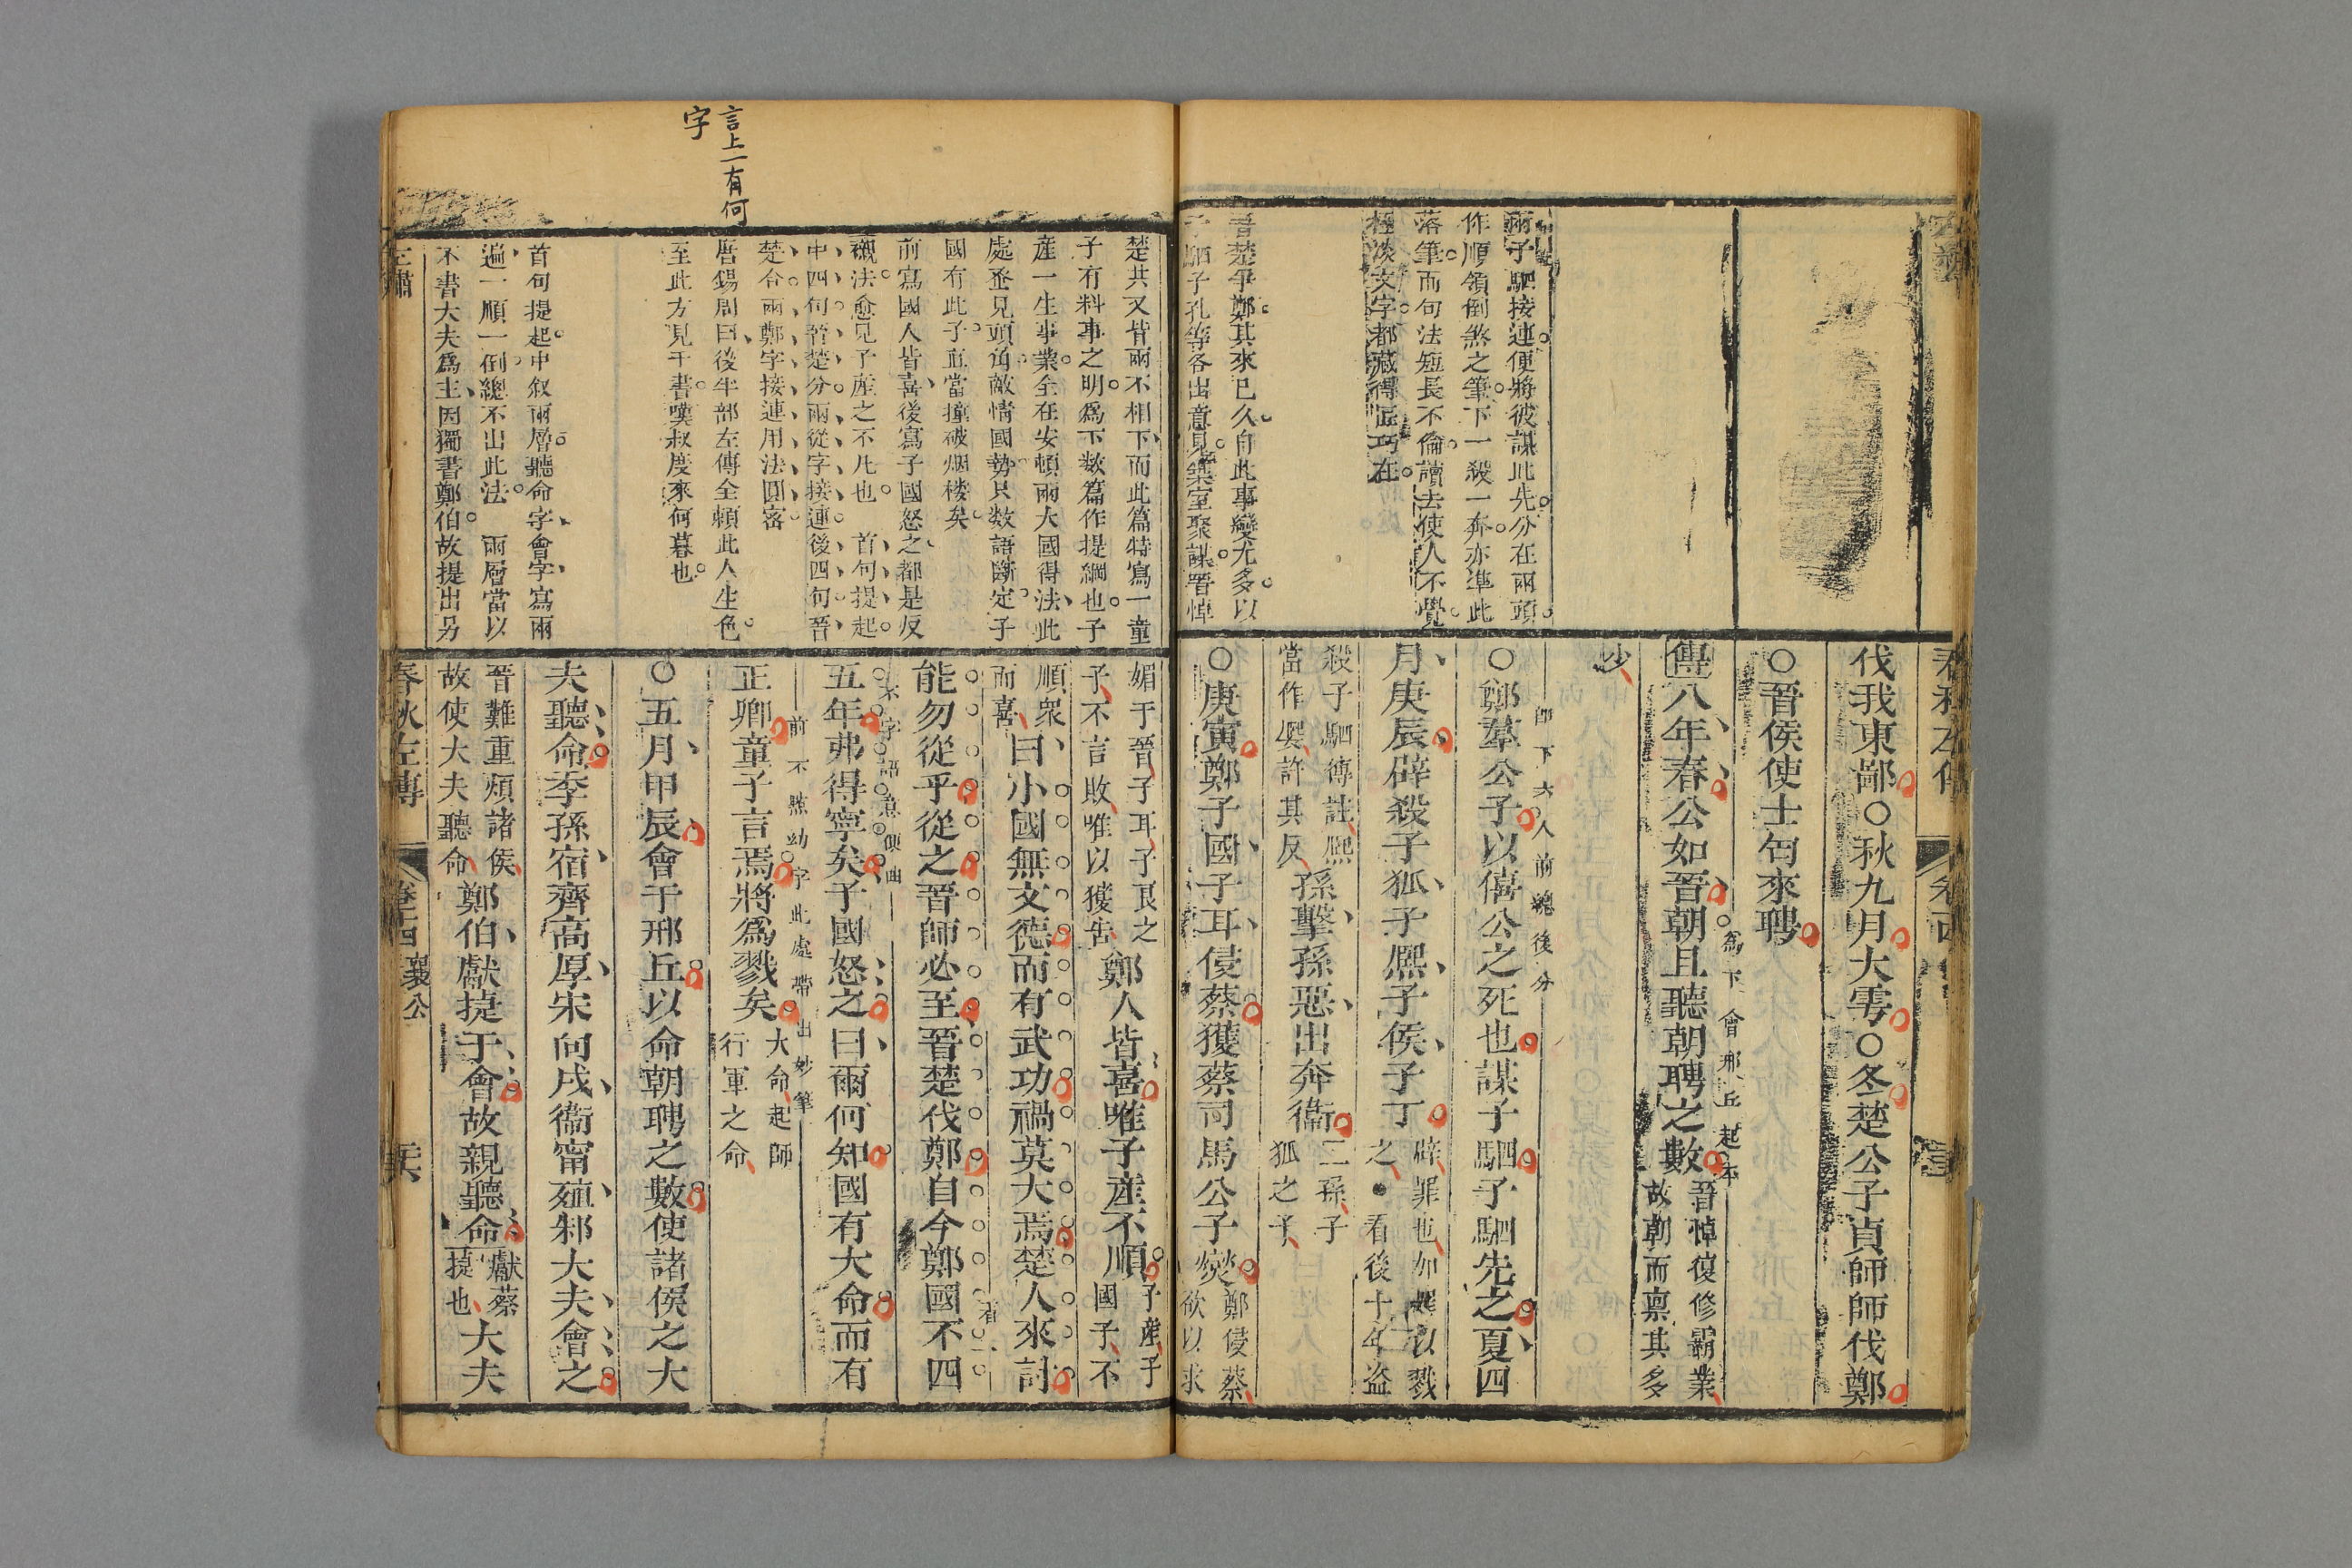 春秋左傳
伐我東鄙○秋九月大雩○冬楚公子貞師師伐鄭
○晉侯使士匄來聘
傳八年春公如晉朝且聽朝聘之數
爲下會邢丘起本
晉悼復修霸業
故朝而禀其多
少
○鄭羣公子以僖公之死也謀子駟子駟先之夏四
月庚辰辟殺子狐子熈子侯子丁
辟罪也加罪以戮
之●看後十年盗
殺子駟傳註熈
當作嬰許其反
孫擊孫惡出奔衞
二孫子
狐之子
○庚寅鄭子國子耳侵蔡獲蔡司馬公子燮
鄭侵蔡
欲以求
兩子駟接連便將彼謀此先分在兩頭
作順領倒煞之筆下一殺一奔亦準此
落筆而句法短長不倫讀去使人不覺
極淡文字都藏得匠巧在
晉楚爭鄭其來已久自此事變尤多以
子駟子孔等各出意見築室聚謀晋悼
言上一有何
字
楚共又皆兩不相下而此篇特寫一童
子有料事之明爲下数篇作提綱也子
産一生事業全在安頓兩大國得法此
處丞見頭角敵情國勢只数語斷定子
國有此子直當撞破烟楼矣
前寫國人皆喜後寫子國怒之都是反
襯法愈見子産之不凡也 首句提起
中四句晉楚分兩從字接連後四句晉
楚合兩鄭字接連用法圓密
唐錫周曰後半部左傳全頼此人生色
至此方見干書嘆叔度來何暮也
首句提起中叙兩層聽命字會字寫兩
遍一順一倒總不出此法 兩層當以
不書大夫爲主因獨書鄭伯故提出另
媚于晉子耳子良之
子不言敗唯以獲告
鄭人皆喜唯子産不順
子産子
國子不
順衆
而喜
曰小國無文德而有武功禍莫大焉楚人來討
能勿從乎從之晉師必至晉楚伐鄭自今鄭國不四
五年弗得寧矣子國怒之曰爾何知國有大命而有
正卿童子言焉將爲戮矣
大命起師
行軍之命
前不點幼字此處帶出妙筆
○五月甲辰會于邢丘以命朝聘之數使諸侯之大
夫聽命季孫宿齊高厚宋向戌衞甯殖邾大夫會之
晉難重煩諸侯
故使大夫聽命
鄭伯獻捷于會故親聽命
獻蔡
捷也
大夫
春秋左傳 卷十四 襄公